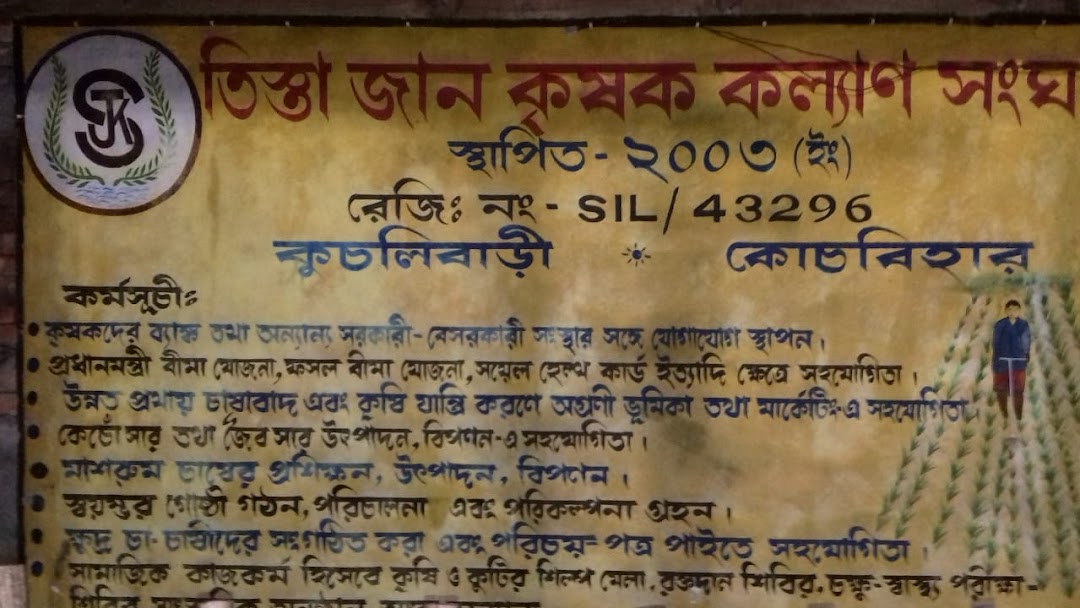 তিস্তা জান কৃষক কল্যাণ সংঘ
স্থাপিত - ২০০৩ (ইং)
রেজিঃ নং - SIL/ 43296
কুচলিবাড়ী কোচবিহার
কর্মসূচীঃ
• কৃষকদের ব্যাঙ্ক তথা অন্যান্য সরকারী-বেসরকারী সংস্থার সঙ্গে যোগাযোগ স্থাপন।
• প্রধানমন্ত্রী বীমা যোজনা, ফসল বীমা যোজনা, সয়েল হেলথ কার্ড ইত্যাদি ক্ষেত্রে সহযোগিতা।
• উন্নত প্রথায় চাষাবাদ এবং কৃষি যান্ত্রি করণে অগ্রণী ভূমিকা তথা মার্কেটিং-এ সহযোগিতা।
• কেচোঁ সার তথা জৈব সার উৎপাদন, বিপণন-এ সহযোগিতা।
• মাশরুম চাষের প্রশিক্ষন, উৎপাদন, বিপণন।
• স্বয়ম্ভর গোষ্ঠী গঠন, পরিচালনা এবং পরিকল্পনা গ্রহন।
• ক্ষুদ্র চা-চাষীদের সংগঠিত করা এবং পরিচয়-পত্র পাইতে সহযোগিতা।
• সামাজিক কাজকর্ম হিসেবে কৃষি ও কুটির শিল্প মেলা, রক্তদান শিবির, চক্ষু-স্বাস্থ্য পরীক্ষা-